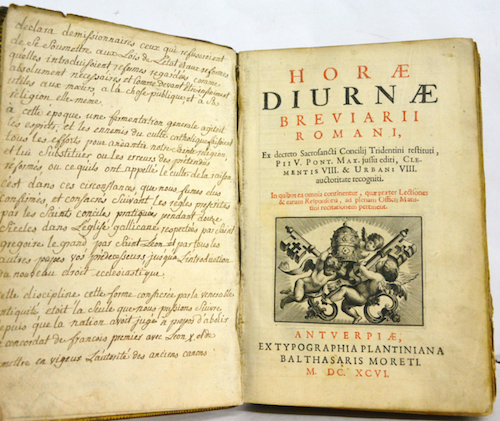 déclara démissionnaires ceux qui refuseroient
de se soumettre aux Lois de l'état aux réformes
qu'elles introduisoient réformes regardées comme
absolument nécessaires et comme devant être
utiles aux mœurs, a la chose publique et a la
religion elle meme.
a cette époque une fermentation generale agitoit
les esprits, et les ennemis du culte catholique
tous les efforts pour anéantir notre sainte religion
et lui substituer ou les erreurs des prétendus
réformés ou ce qu'ils ont appellé le culte de la raison
c'est dans ces circonstances, que nous fumes élus
confirmés et consacrés suivant les regles prescrites
par les Saints conciles pratiquées pendant douze
Siecles dans l'eglise gallicane respectées par Saint
gregoire le grand par Saint Leon et par tous les
autres papes vos prédecesseurs jusqu'a l'introduction
du nouveau droit ecclesiastique.
cette discipline cette forme consacrée par la venerable
antiquité, etoit la Seule que nous pussions Suivre
depuis que la nation avoit jugé a propos d'abolir
concordat de françois premier avec Leon x. et de
mettre en vigeur l'autorité des anciens canons
HORÆ
DIURNÆ
BREVIARII
ROMANI,
Ex decreto Sacrosancti Concilij Tridentini restituti,
PII V. PONT. MAX. jussu editi, CLE-
MENTIS VIII. & URBANI VIII.
auctoritate recogniti.
In quibus ea omnia continentur, quæ præter Lectiones
& earum Responsoria, ad plenam Officij Matu-
tini recitationem pertinent.
ANTVERPIÆ,
EX TYPOGRAPHIA PLANTINIANA
BALTHASARIS MORETI.
M. DC. XCVI.